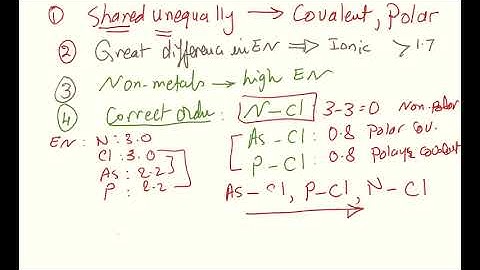 ① Shared unequally → Covalent, Polar
② Great difference in EN ⇒ Ionic >1.7
③ Non-metals → high EN
④ Correct order: N-Cl 3-3=0 Non-polar
As-Cl: 0.8 Polar Cov.
P-Cl: 0.8 Polar covalent
EN: N: 3.0
Cl: 3.0
As: 2.2
P: 2.2
As-Cl, P-Cl, N-Cl